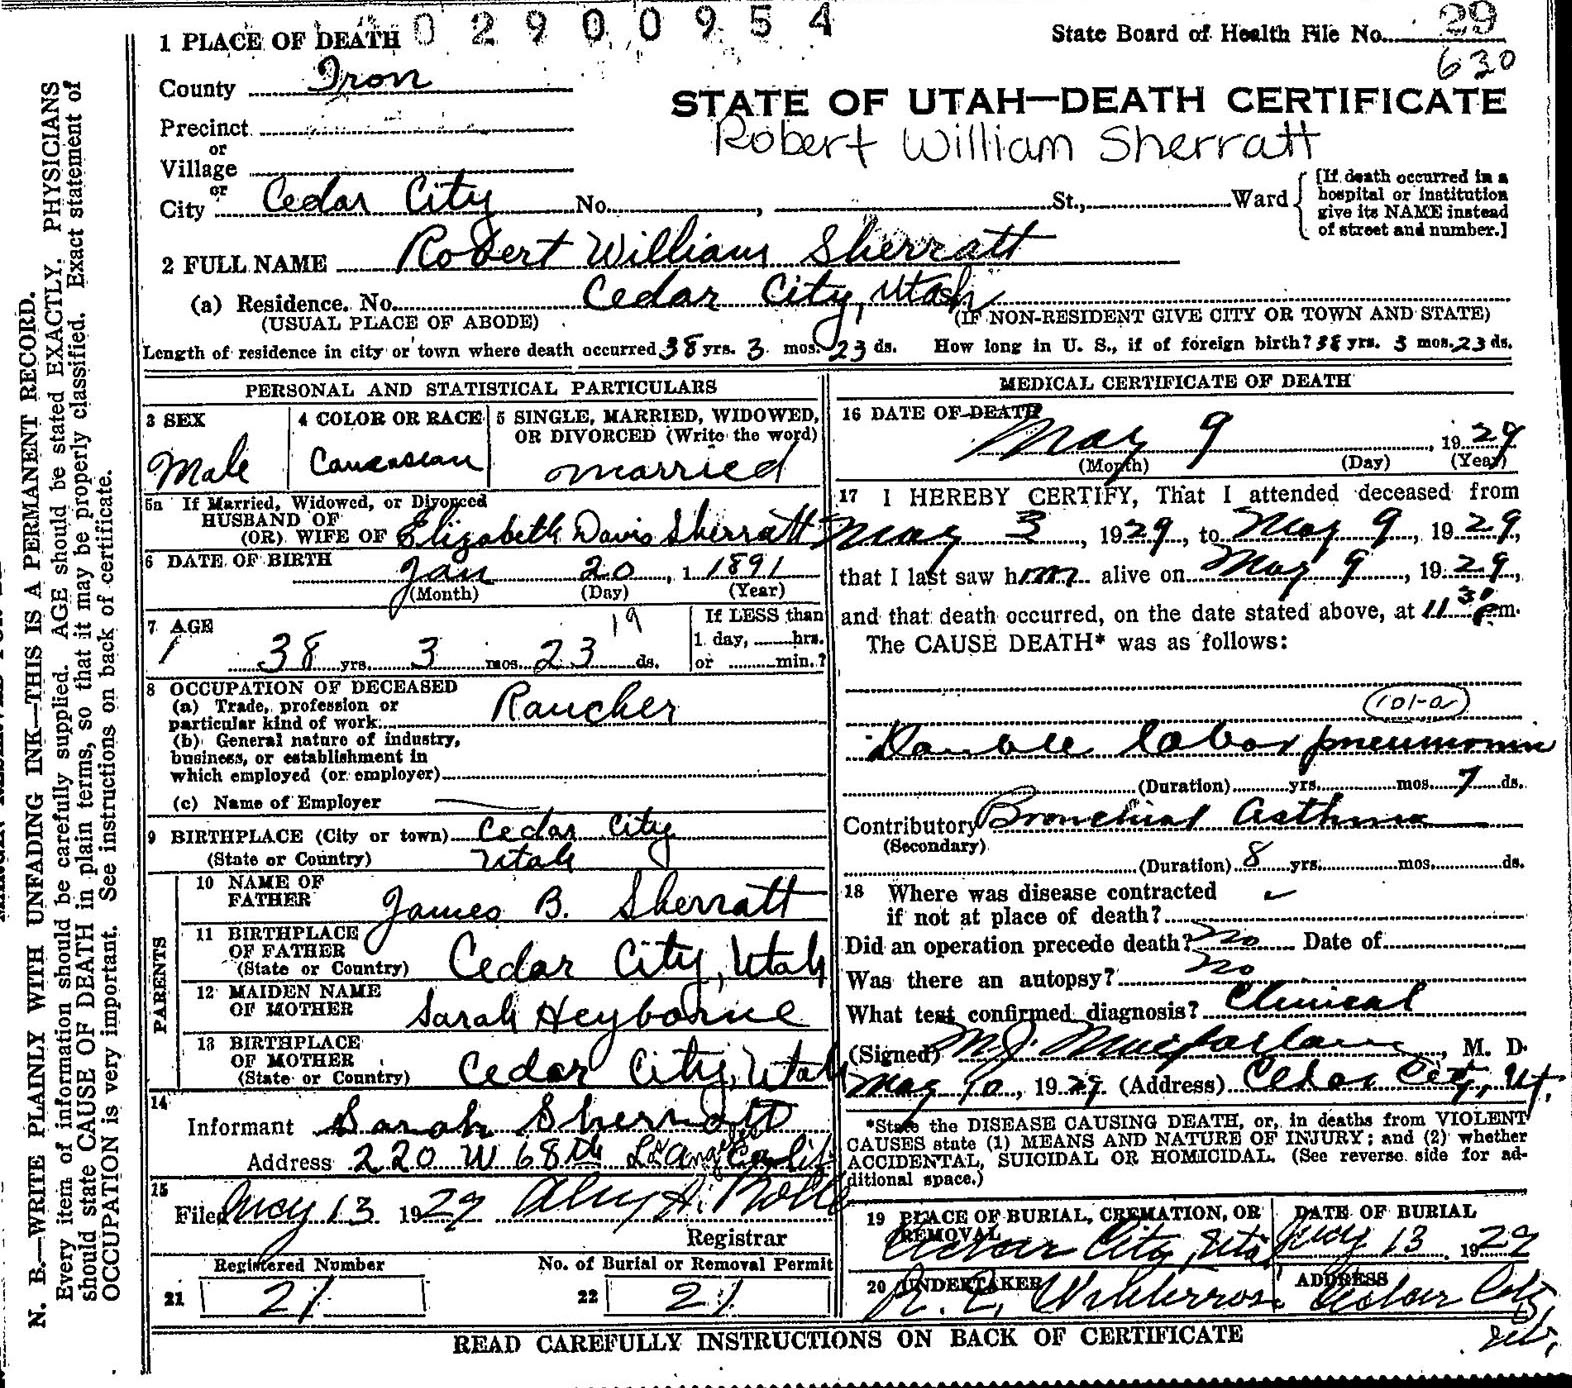 02900954
State Board of Health File No. 29
630
1 PLACE OF DEATH
County Iron
STATE OF UTAH—DEATH CERTIFICATE
Robert William Sherratt
Precinct
or
Village
or
City Cedar City No. , St., Ward
[If death occurred in a
hospital or institution
give its NAME instead
of street and number.]
2 FULL NAME Robert William Sherratt
(a) Residence. No. Cedar City, Utah
(USUAL PLACE OF ABODE) (IF NON-RESIDENT GIVE CITY OR TOWN AND STATE)
Length of residence in city or town where death occurred 38 yrs. 3 mos. 23 ds. How long in U. S., if of foreign birth? 38 yrs. 3 mos. 23 ds.
PERSONAL AND STATISTICAL PARTICULARS
3 SEX
Male
4 COLOR OR RACE
Caucasian
5 SINGLE, MARRIED, WIDOWED,
OR DIVORCED (Write the word)
married
5a If Married, Widowed, or Divorced
HUSBAND OF
(OR) WIFE OF Elizabeth Davis Sherratt
6 DATE OF BIRTH Jan 20, 1 1891
(Month) (Day) (Year)
7 AGE
19
1 38 yrs. 3 mos. 23 ds.
If LESS than
1 day, hrs.
or min.?
8 OCCUPATION OF DECEASED
(a) Trade, profession or
particular kind of work Rancher
(b) General nature of industry,
business, or establishment in
which employed (or employer)
(c) Name of Employer
9 BIRTHPLACE (City or town) Cedar City
(State or Country) Utah
PARENTS
10 NAME OF
FATHER James B. Sherratt
11 BIRTHPLACE
OF FATHER
(State or Country) Cedar City, Utah
12 MAIDEN NAME
OF MOTHER Sarah Heyborne
13 BIRTHPLACE
OF MOTHER
(State or Country) Cedar City, Utah
14
Informant Sarah Sherratt
Address 220 W 68th Los Angeles Calif
15
Filed May 13 1929
Registrar
Registered Number
21 21
No. of Burial or Removal Permit
22 21
MEDICAL CERTIFICATE OF DEATH
16 DATE OF DEATH
May 9, 1929
(Month) (Day) (Year)
17 I HEREBY CERTIFY, That I attended deceased from
May 3, 1929, to May 9, 1929,
that I last saw him alive on May 9, 1929,
and that death occurred, on the date stated above, at 11 30 pm.
The CAUSE DEATH* was as follows:
101-a
Double lobar pneumonia
(Duration) yrs. mos. 7 ds.
Contributory Bronchial asthma
(Secondary)
(Duration) 8 yrs. mos. ds.
18 Where was disease contracted
if not at place of death?
Did an operation precede death? no Date of
Was there an autopsy? no
What test confirmed diagnosis? Clinical
(Signed) M.J. Macfarlane, M. D.
May 10, 1929 (Address) Cedar City, Ut.
*State the DISEASE CAUSING DEATH, or, in deaths from VIOLENT
CAUSES state (1) MEANS AND NATURE OF INJURY; and (2) whether
ACCIDENTAL, SUICIDAL OR HOMICIDAL. (See reverse side for ad-
ditional space.)
19 PLACE OF BURIAL, CREMATION, OR
REMOVAL
Cedar City, Utah
DATE OF BURIAL
May 13, 1929
20 UNDERTAKER
ADDRESS
Cedar City
READ CAREFULLY INSTRUCTIONS ON BACK OF CERTIFICATE
N. B.—WRITE PLAINLY WITH UNFADING INK—THIS IS A PERMANENT RECORD.
Every item of information should be carefully supplied. AGE should be stated EXACTLY. PHYSICIANS
should state CAUSE OF DEATH in plain terms, so that it may be properly classified. Exact statement of
OCCUPATION is very important. See instructions on back of certificate.